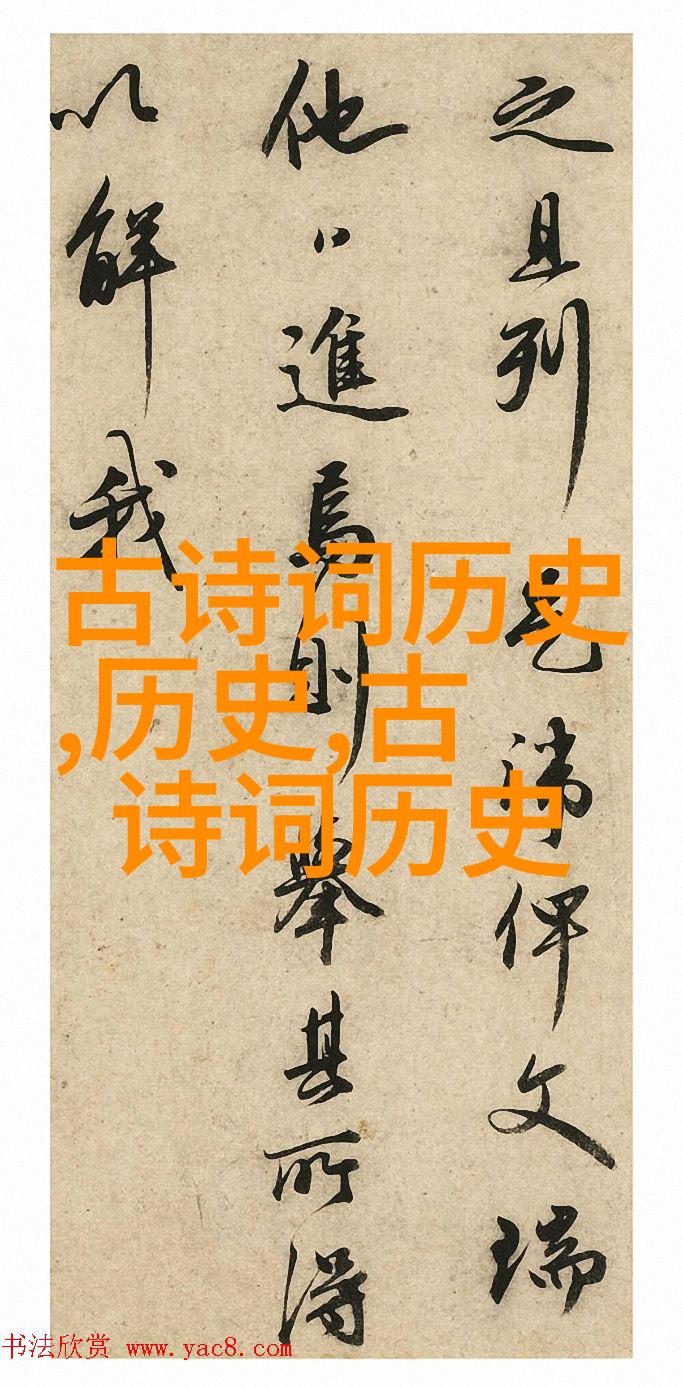 之且列俾文瑞
他進焉則舉其所得
以解我
古诗词历史
,历史,古
诗词历史
书法欣赏 www.yac8.com